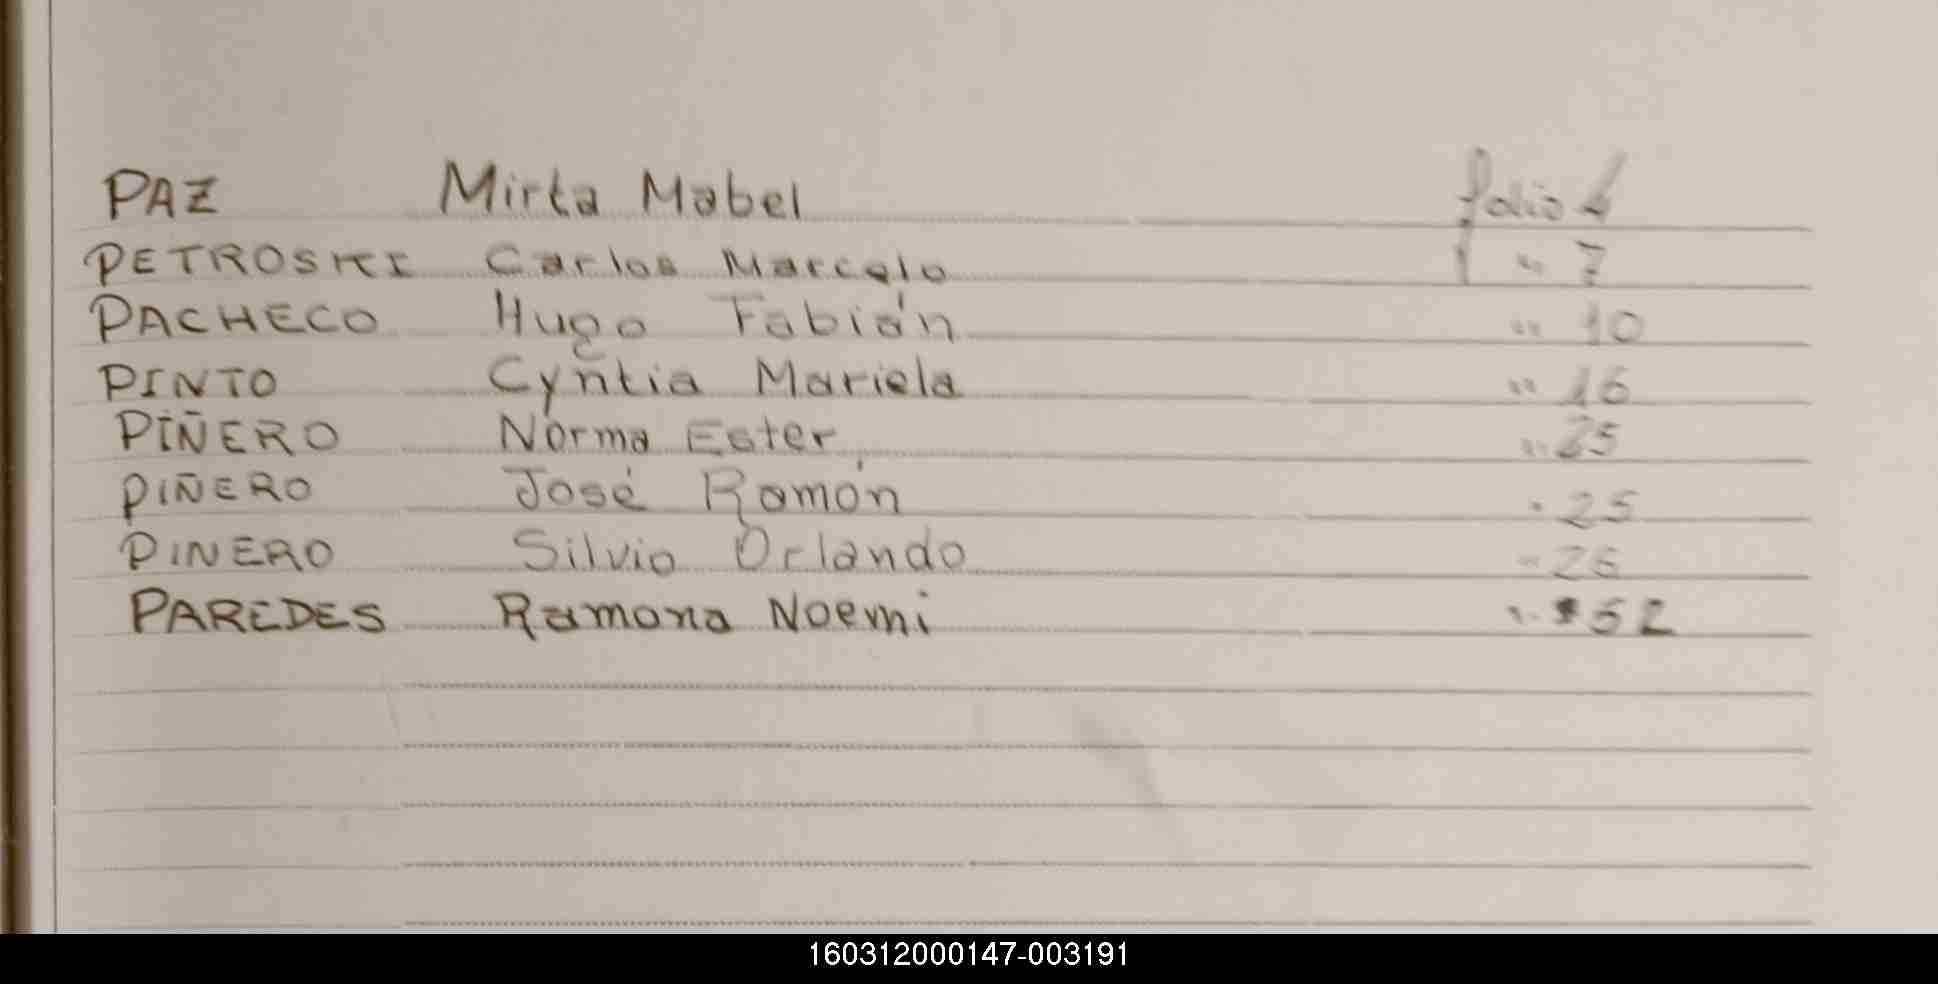 PAZ Mirta Mabel folio 4
PETROSKI Carlos Marcelo " 7
PACHECO Hugo Fabián " 10
PINTO Cyntia Mariela " 16
PIÑERO Norma Ester " 25
PIÑERO José Ramón " 25
PINERO Silvio Orlando " 26
PAREDES Ramona Noemi " 52
160312000147-003191